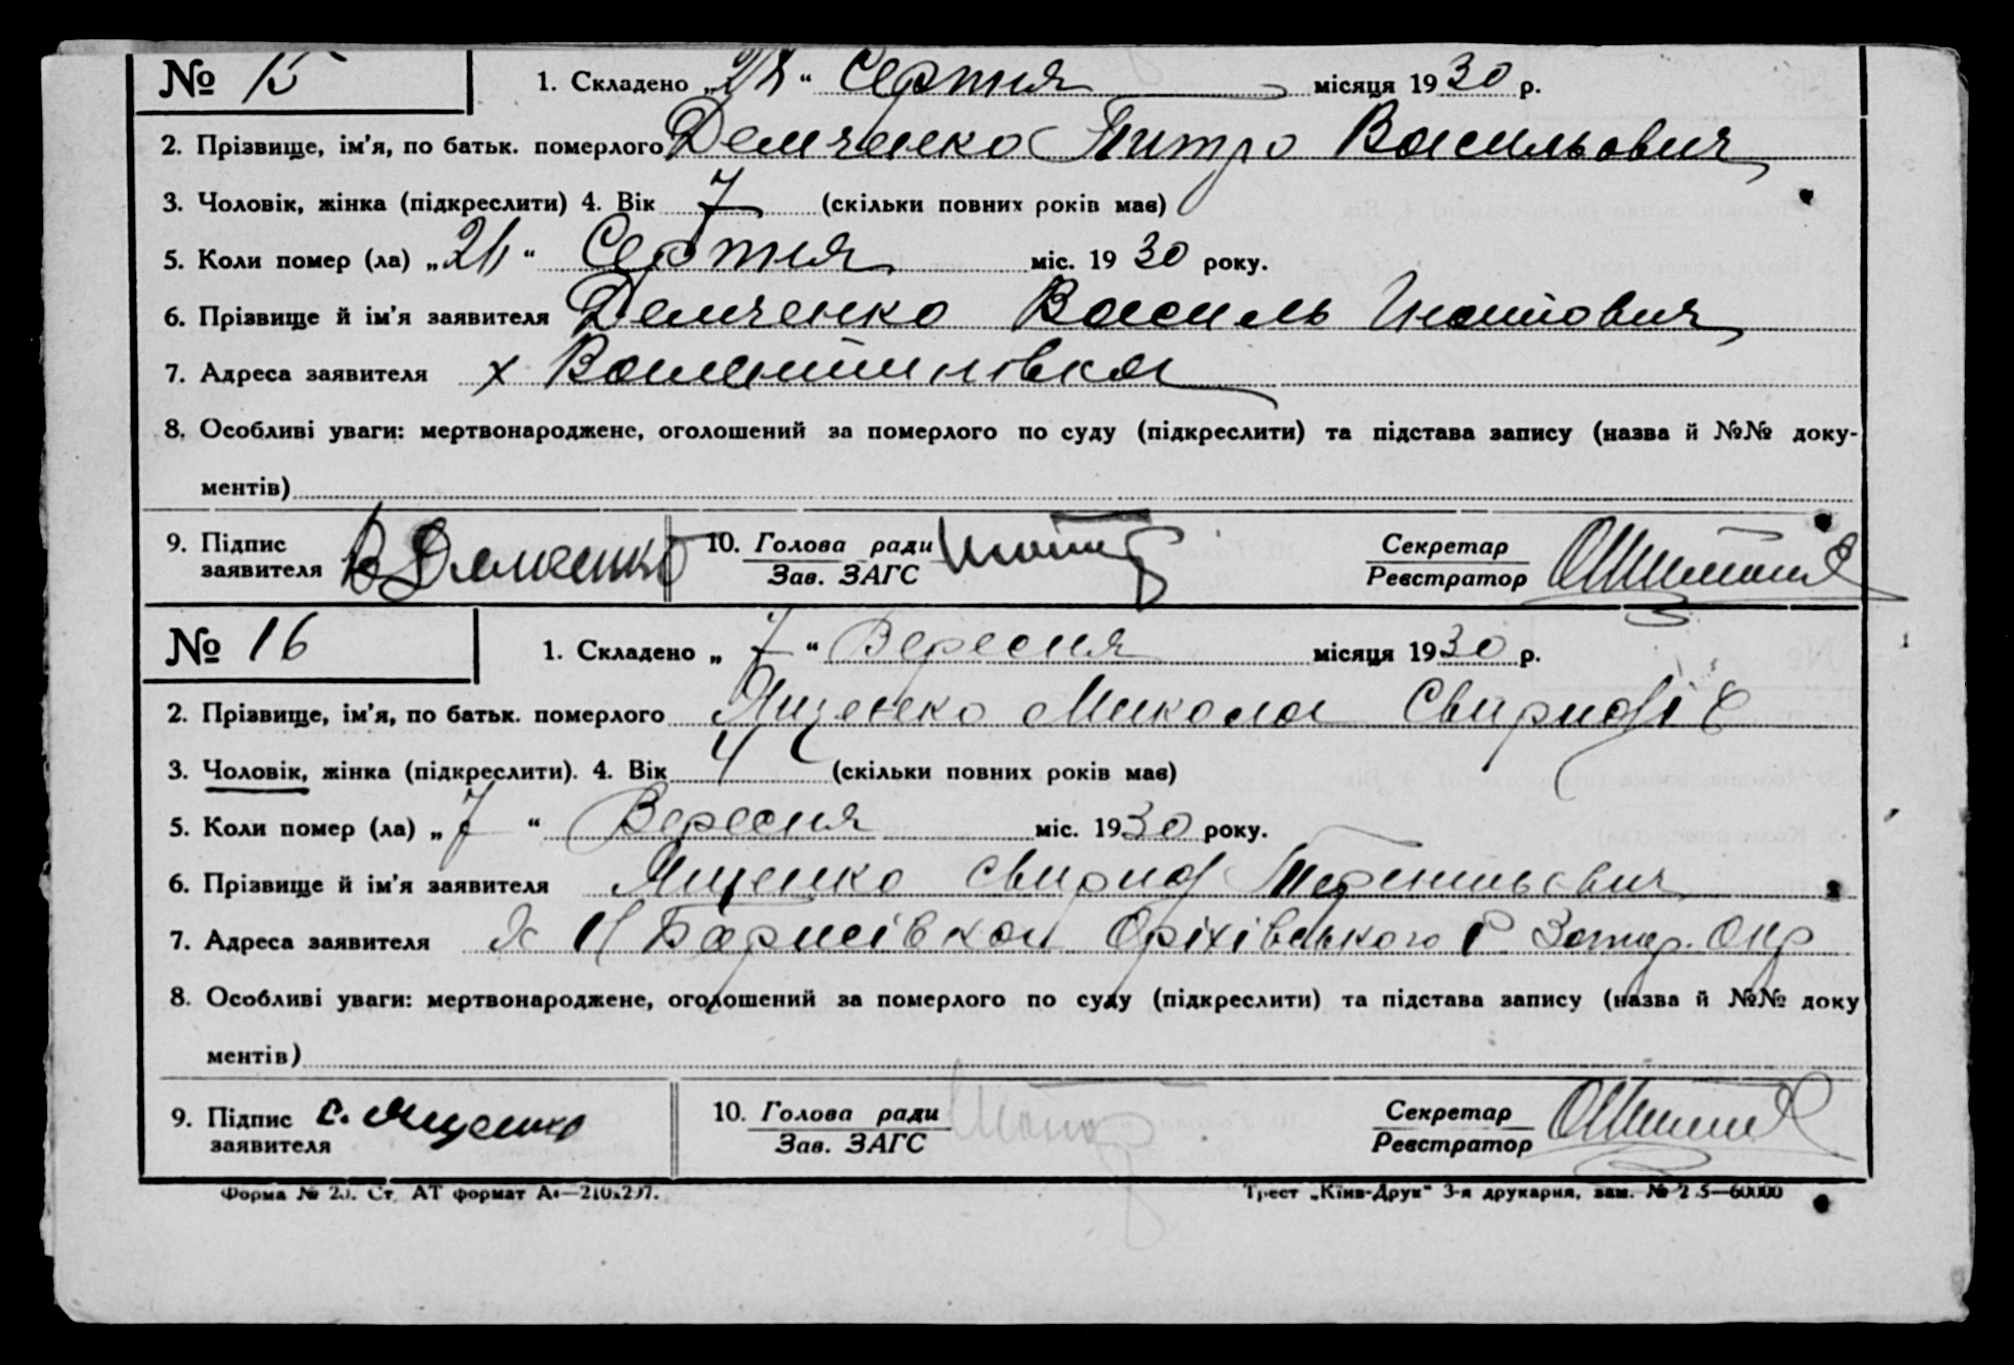 № 15 1. Складено „ “ Серпня місяця 1930 р.
2. Прізвище, ім’я, по батьк. померлого Демченко Питро Васильович
3. Чоловік, жінка (підкреслити) 4. Вік 7 (скільки повних років має)
5. Коли помер (ла) „ “ Серпня міс. 1930 року.
6. Прізвище й ім’я заявителя Демченко Василь
7. Адреса заявителя х Валентинівка
8. Особливі уваги: мертвонароджене, оголошений за померлого по суду (підкреслити) та підстава запису (назва й №№ доку-
ментів)
9. Підпис заявителя В Демченко 10. Голова ради Зав. ЗАГС Секретар Реєстратор
№ 16 1. Складено „ 7 “ Вересня місяця 1930 р.
2. Прізвище, ім’я, по батьк. померлого Ященко Микола Свиридович
3. Чоловік, жінка (підкреслити). 4. Вік 4 (скільки повних років має)
5. Коли помер (ла) „ 7 “ Вересня міс. 1930 року.
6. Прізвище й ім’я заявителя Ященко Свирид
7. Адреса заявителя Борисівка Оріхівського Р Запор. Окр
8. Особливі уваги: мертвонароджене, оголошений за померлого по суду (підкреслити) та підстава запису (назва й №№ доку
ментів)
9. Підпис заявителя С. Ященко 10. Голова ради Зав. ЗАГС Секретар Реєстратор
Форма № Ст. АТ формат Трест „Київ-Друк“ 3-я друкарня, зам. №